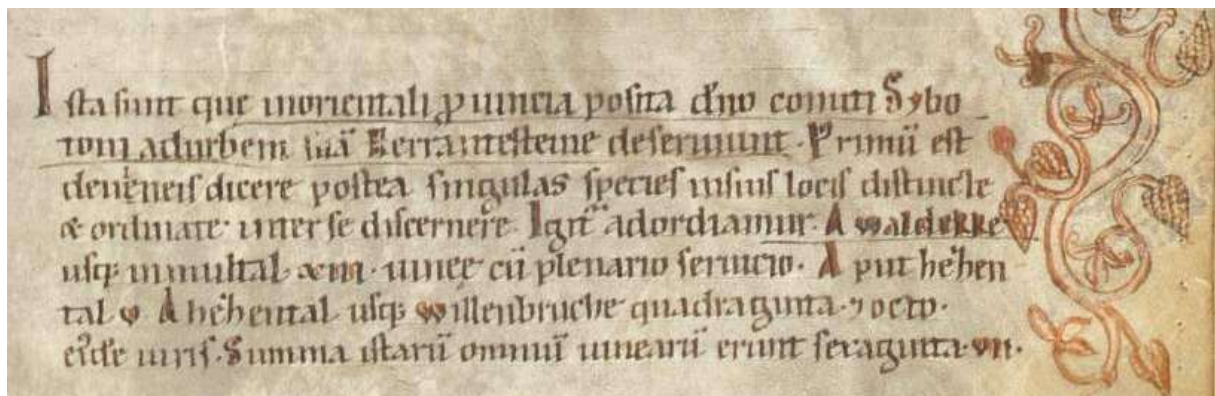 Ista sunt que inorientali ꝓuincia posita dn̄o comiti Sẏbo
toni adurbem suā Herrantesteine deseruiunt. Primū est
deuineis dicere postea singulas species insuis locis distincte
& ordinate inter se discernere. Igit̄ adordiamur. A waldekke
usq; inmultal. xiii. uineę cū plenario seruicio. Aput hehen
tal v A hehental usq; willenbruche quadraginta. ⁊ octo.
eiusde iuris. Summa istarū omniū uinearū erunt sexaginta. vii.